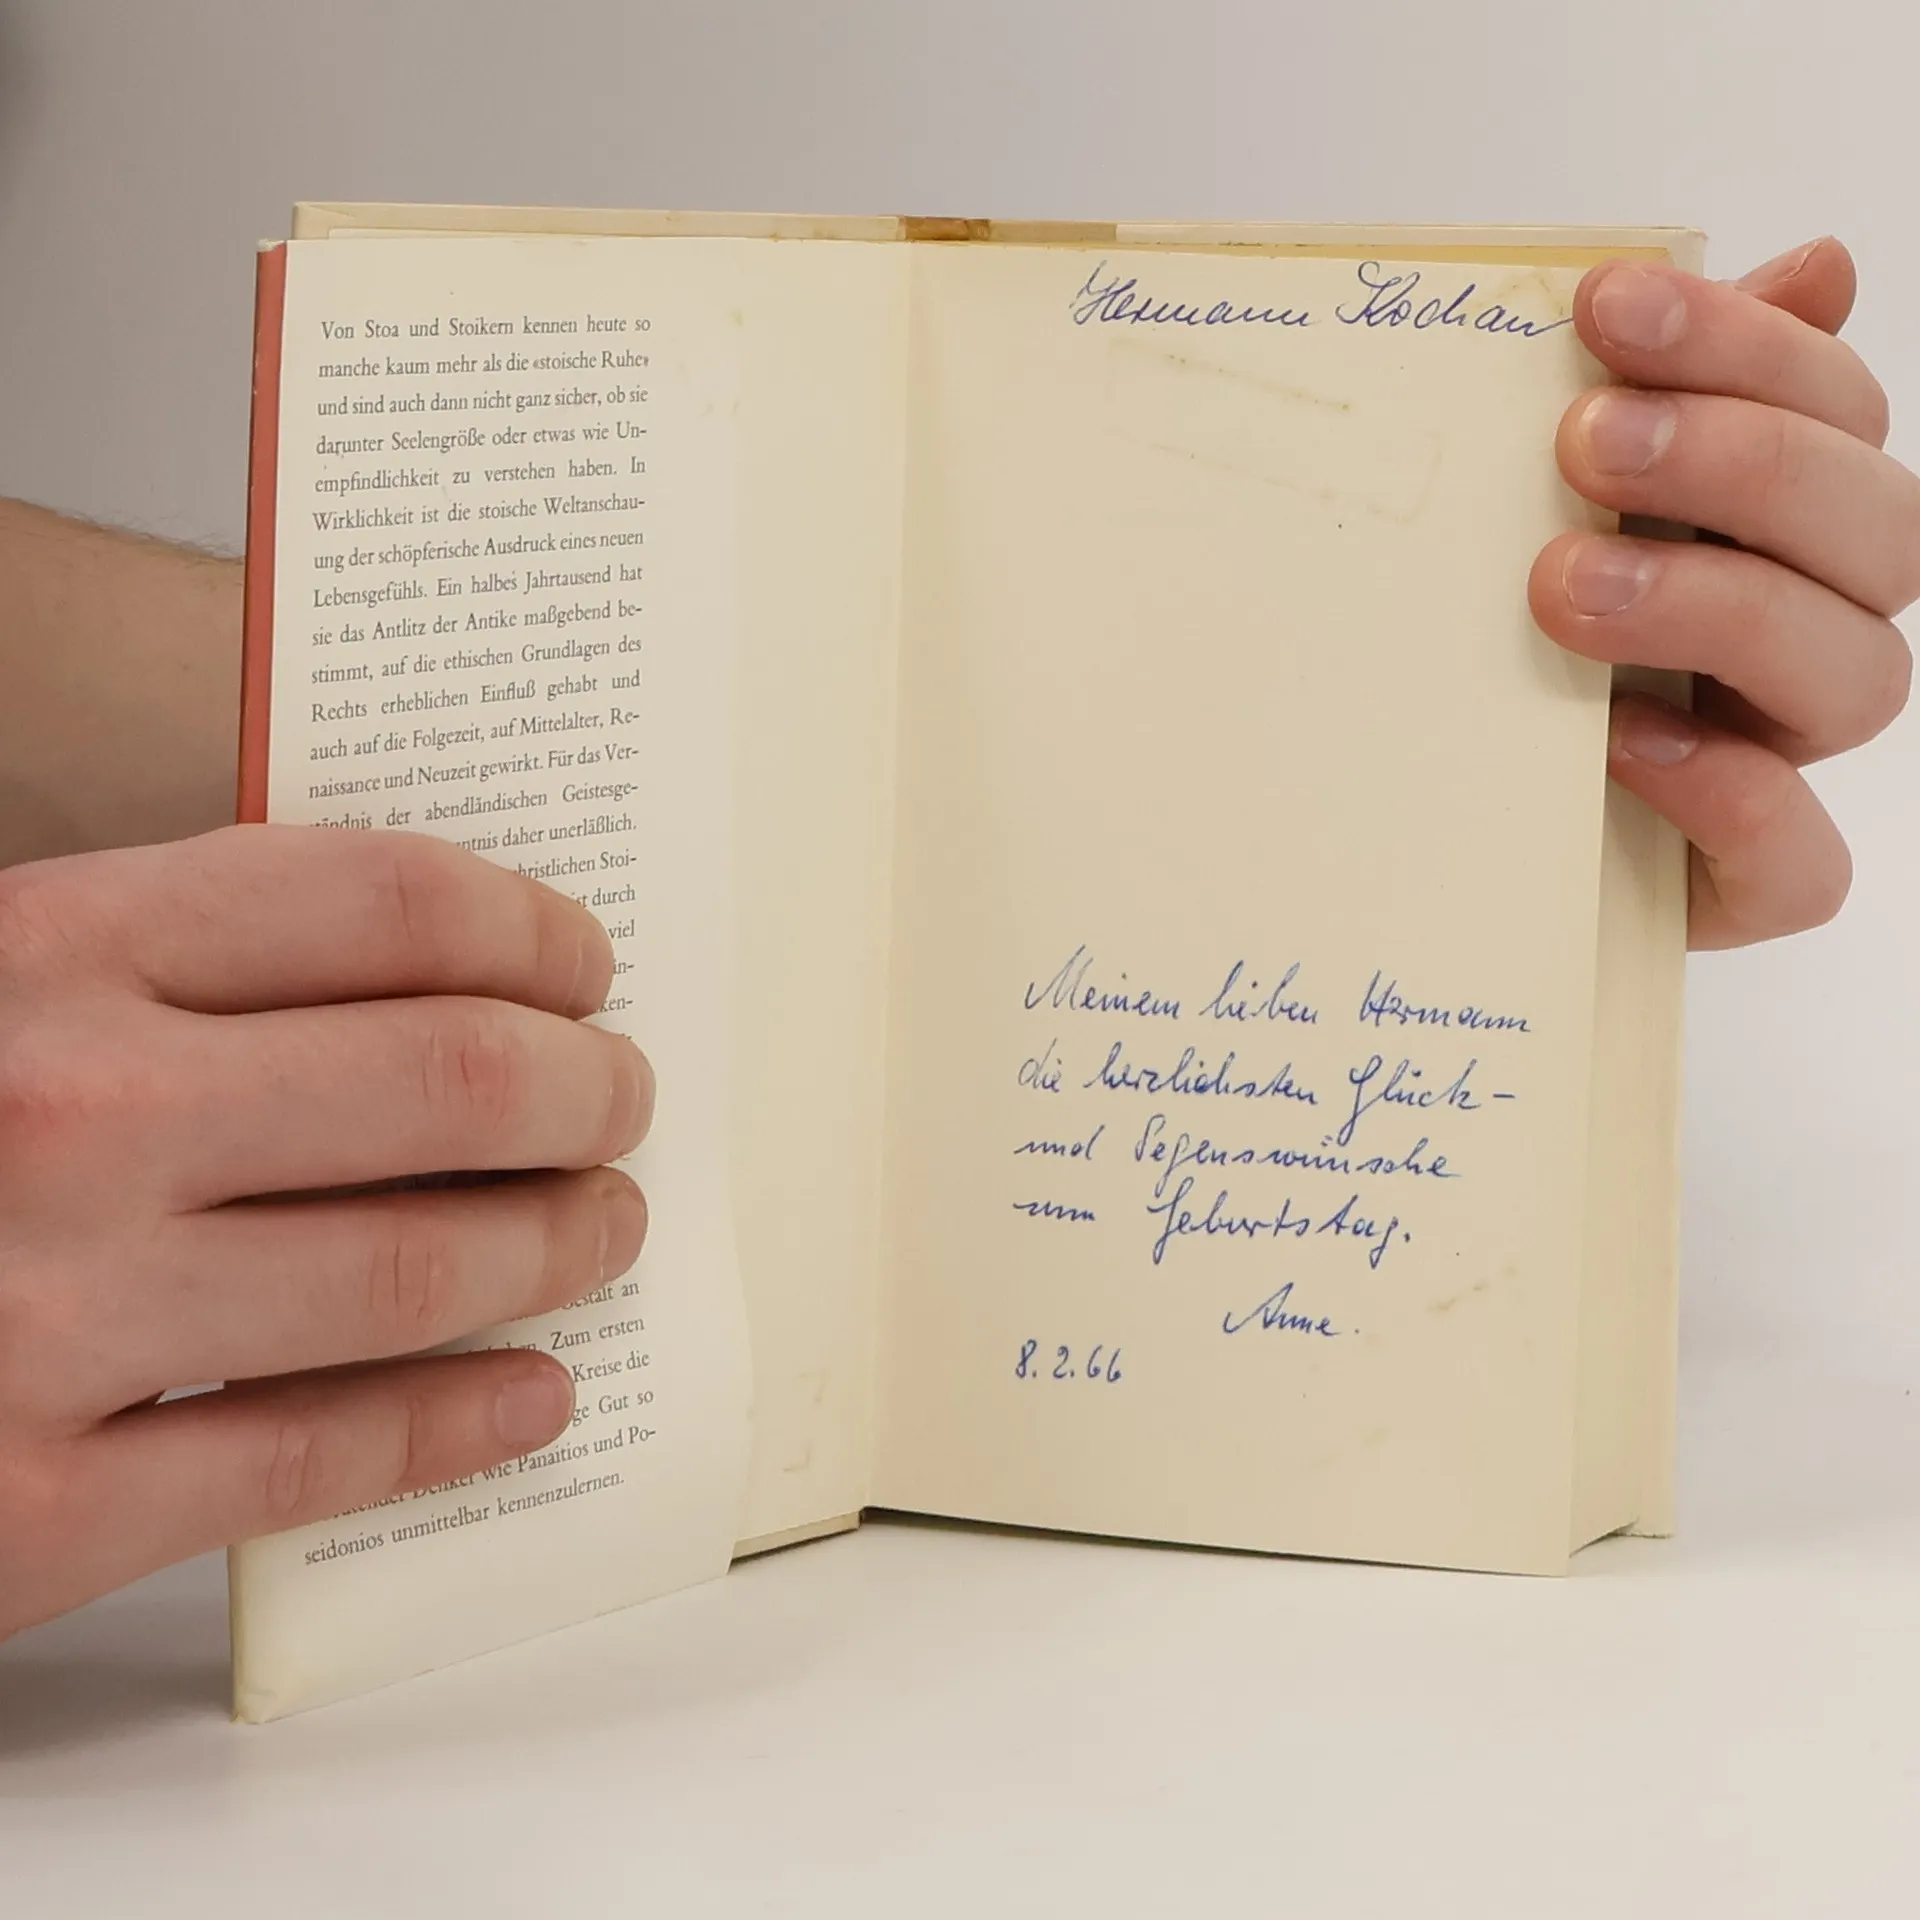 Von Stoa und Stoikern kennen heute so
manche kaum mehr als die «stoische Ruhe»
und sind auch dann nicht ganz sicher, ob sie
darunter Seelengröße oder etwas wie Un-
empfindlichkeit zu verstehen haben. In
Wirklichkeit ist die stoische Weltanschau-
ung der schöpferische Ausdruck eines neuen
Lebensgefühls. Ein halbes Jahrtausend hat
sie das Antlitz der Antike maßgebend be-
stimmt, auf die ethischen Grundlagen des
Rechts erheblichen Einfluß gehabt und
auch auf die Folgezeit, auf Mittelalter, Re-
naissance und Neuzeit gewirkt. Für das Ver-
ständnis der abendländischen Geistesge-
daher unerläßlich.
christlichen Stoi-
durch
viel
in-
ken-
Gestalt an
Zum ersten
Kreise die
Gut so
Denker wie Panaitios und Po-
seidonios unmittelbar kennenzulernen.
Hermann Kochan
Meinem lieben Hermann
die herzlichsten Glück-
und Segenswünsche
zum Geburtstag.
Anne.
8.2.66